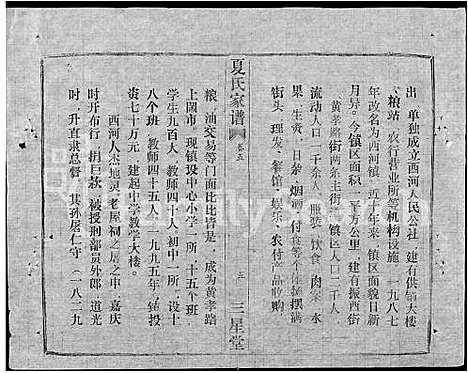 出 单独成立西河人民公社 建有供销大楼
、粮站 农行营业所等机构设施 一九八七
年改名为西河镇 近十年来 镇区面貌日新
月异。今镇区面积一平方公里 建有振西街
、黄孝路街两条主街 镇区人口二千人
流动人口二千余人 服装 饮食 肉案 水
果、生资、日杂、烟酒 付食等个体摊摆满
街头、理发、餐馆、娱乐、农付产品收购、
夏氏家谱
卷五
三
三星堂
粮、油交易等门面比比皆是 成为黄孝路
上闹市。现镇设中心小学一所、十五个班、
学生九百人 教师四十人 初中一所、设十
八个班 教师四十五人 一九九五年 镇投
资七十万元 建起中学教学大楼。
西河人杰地灵 老屋祠之屠之申 嘉庆
时开布行、捐巨款 被授刑部员外郎 道光
时、升直隶总督 其孙屠仁守（一八二九